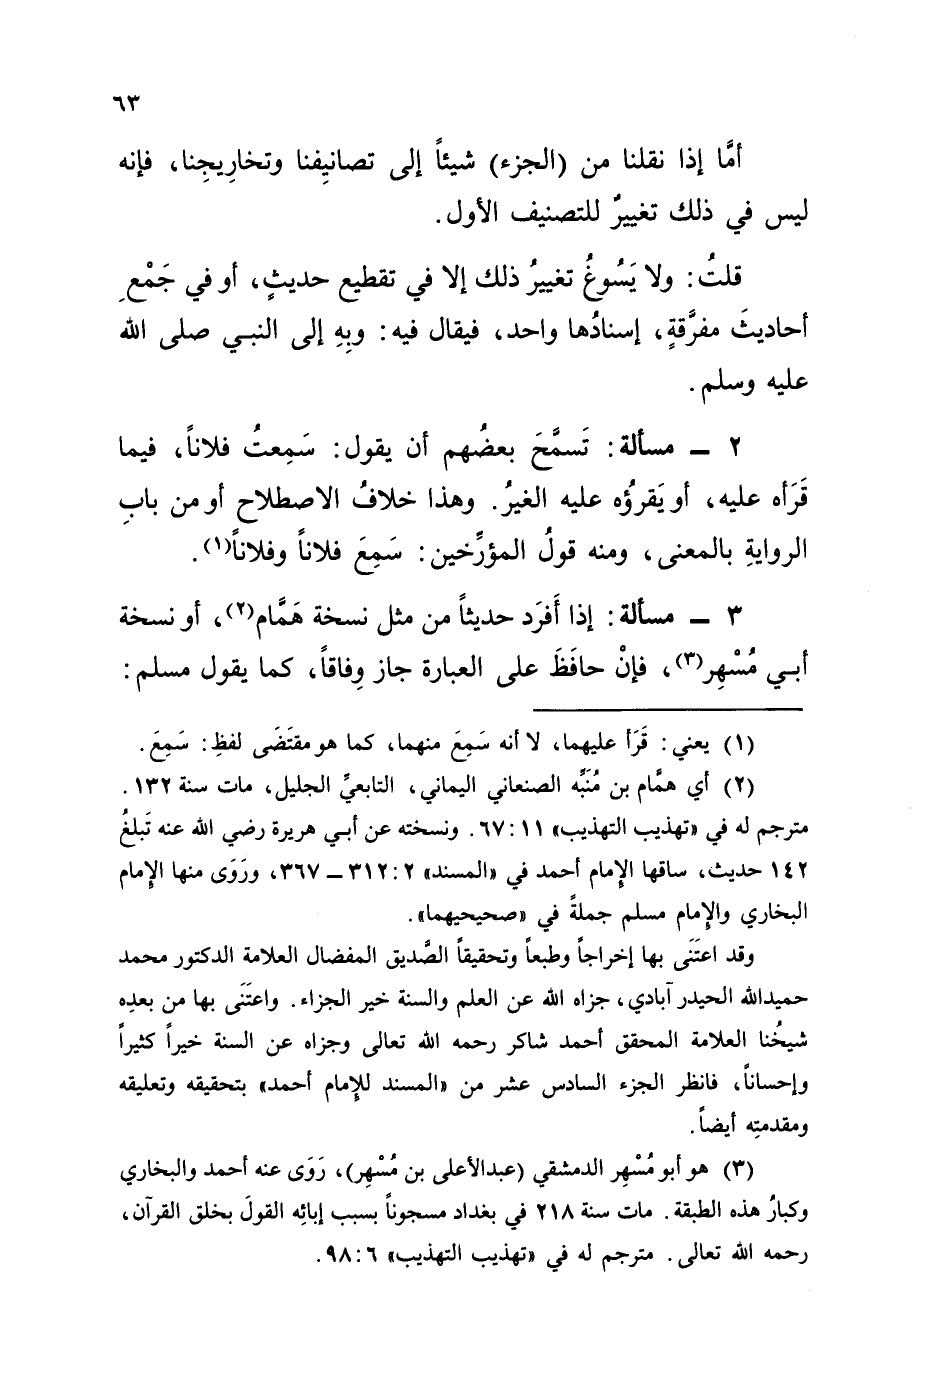 ٦٣
أمَّا إذا نقلنا من (الجزء) شيئاً إلى تصانيفنا وتخاريجنا، فإنه
ليس في ذلك تغييرٌ للتصنيف الأول.
قلتُ: ولا يَسُوغُ تغييرُ ذلك إلا في تقطيع حديثٍ، أو في جَمْعِ
أحاديثَ مفرَّقةٍ، إسنادُها واحد، فيقال فيه: وبِهِ إلى النبـي صلى الله
عليه وسلم.
٢ ــ مسألة: تَسمَّحَ بعضُهم أن يقول: سَمِعتُ فلاناً، فيما
قَرَأه عليه، أو يَقرؤُه عليه الغيرُ. وهذا خلافُ الاصطلاح أو من بابِ
الروايةِ بالمعنى، ومنه قولُ المؤرِّخين: سَمِعَ فلاناً وفلاناً(١).
٣ ــ مسألة: إذا أَفرَد حديثاً من مثل نسخة هَمَّام(٢)، أو نسخة
أبـي مُسْهِر(٣)، فإنْ حافَظَ على العبارة جاز وِفاقاً، كما يقول مسلم:
(١) يعني: قَرَأ عليهما، لا أنه سَمِعَ منهما، كما هو مقتَضَى لفظِ: سَمِعَ.
(٢) أي همَّام بن مُنَبِّه الصنعاني اليماني، التابعيِّ الجليل، مات سنة ١٣٢.
مترجم له في «تهذيب التهذيب» ١١: ٦٧. ونسخته عن أبـي هريرة رضي الله عنه تَبلغُ
١٤٢ حديث، ساقها الإمام أحمد في «المسند» ٢: ٣١٢ ــ ٣٦٧، ورَوَى منها الإمام
البخاري والإمام مسلم جملةً في «صحيحيهما».
وقد اعتَنَى بها إخراجاً وطبعاً وتحقيقاً الصَّديق المفضال العلامة الدكتور محمد
حميدالله الحيدر آبادي، جزاه الله عن العلم والسنة خير الجزاء. واعتَنَى بها من بعدِه
شيخُنا العلامة المحقق أحمد شاكر رحمه الله تعالى وجزاه عن السنة خيراً كثيراً
وإحساناً، فانظر الجزء السادس عشر من «المسند للإمام أحمد» بتحقيقه وتعليقه
ومقدمتِه أيضاً.
(٣) هو أبو مُسْهِر الدمشقي (عبدالأعلى بن مُسْهِر)، رَوَى عنه أحمد والبخاري
وكبارُ هذه الطبقة. مات سنة ٢١٨ في بغداد مسجوناً بسبب إبائِه القولَ بخلق القرآن،
رحمه الله تعالى. مترجم له في «تهذيب التهذيب» ٦: ٩٨.